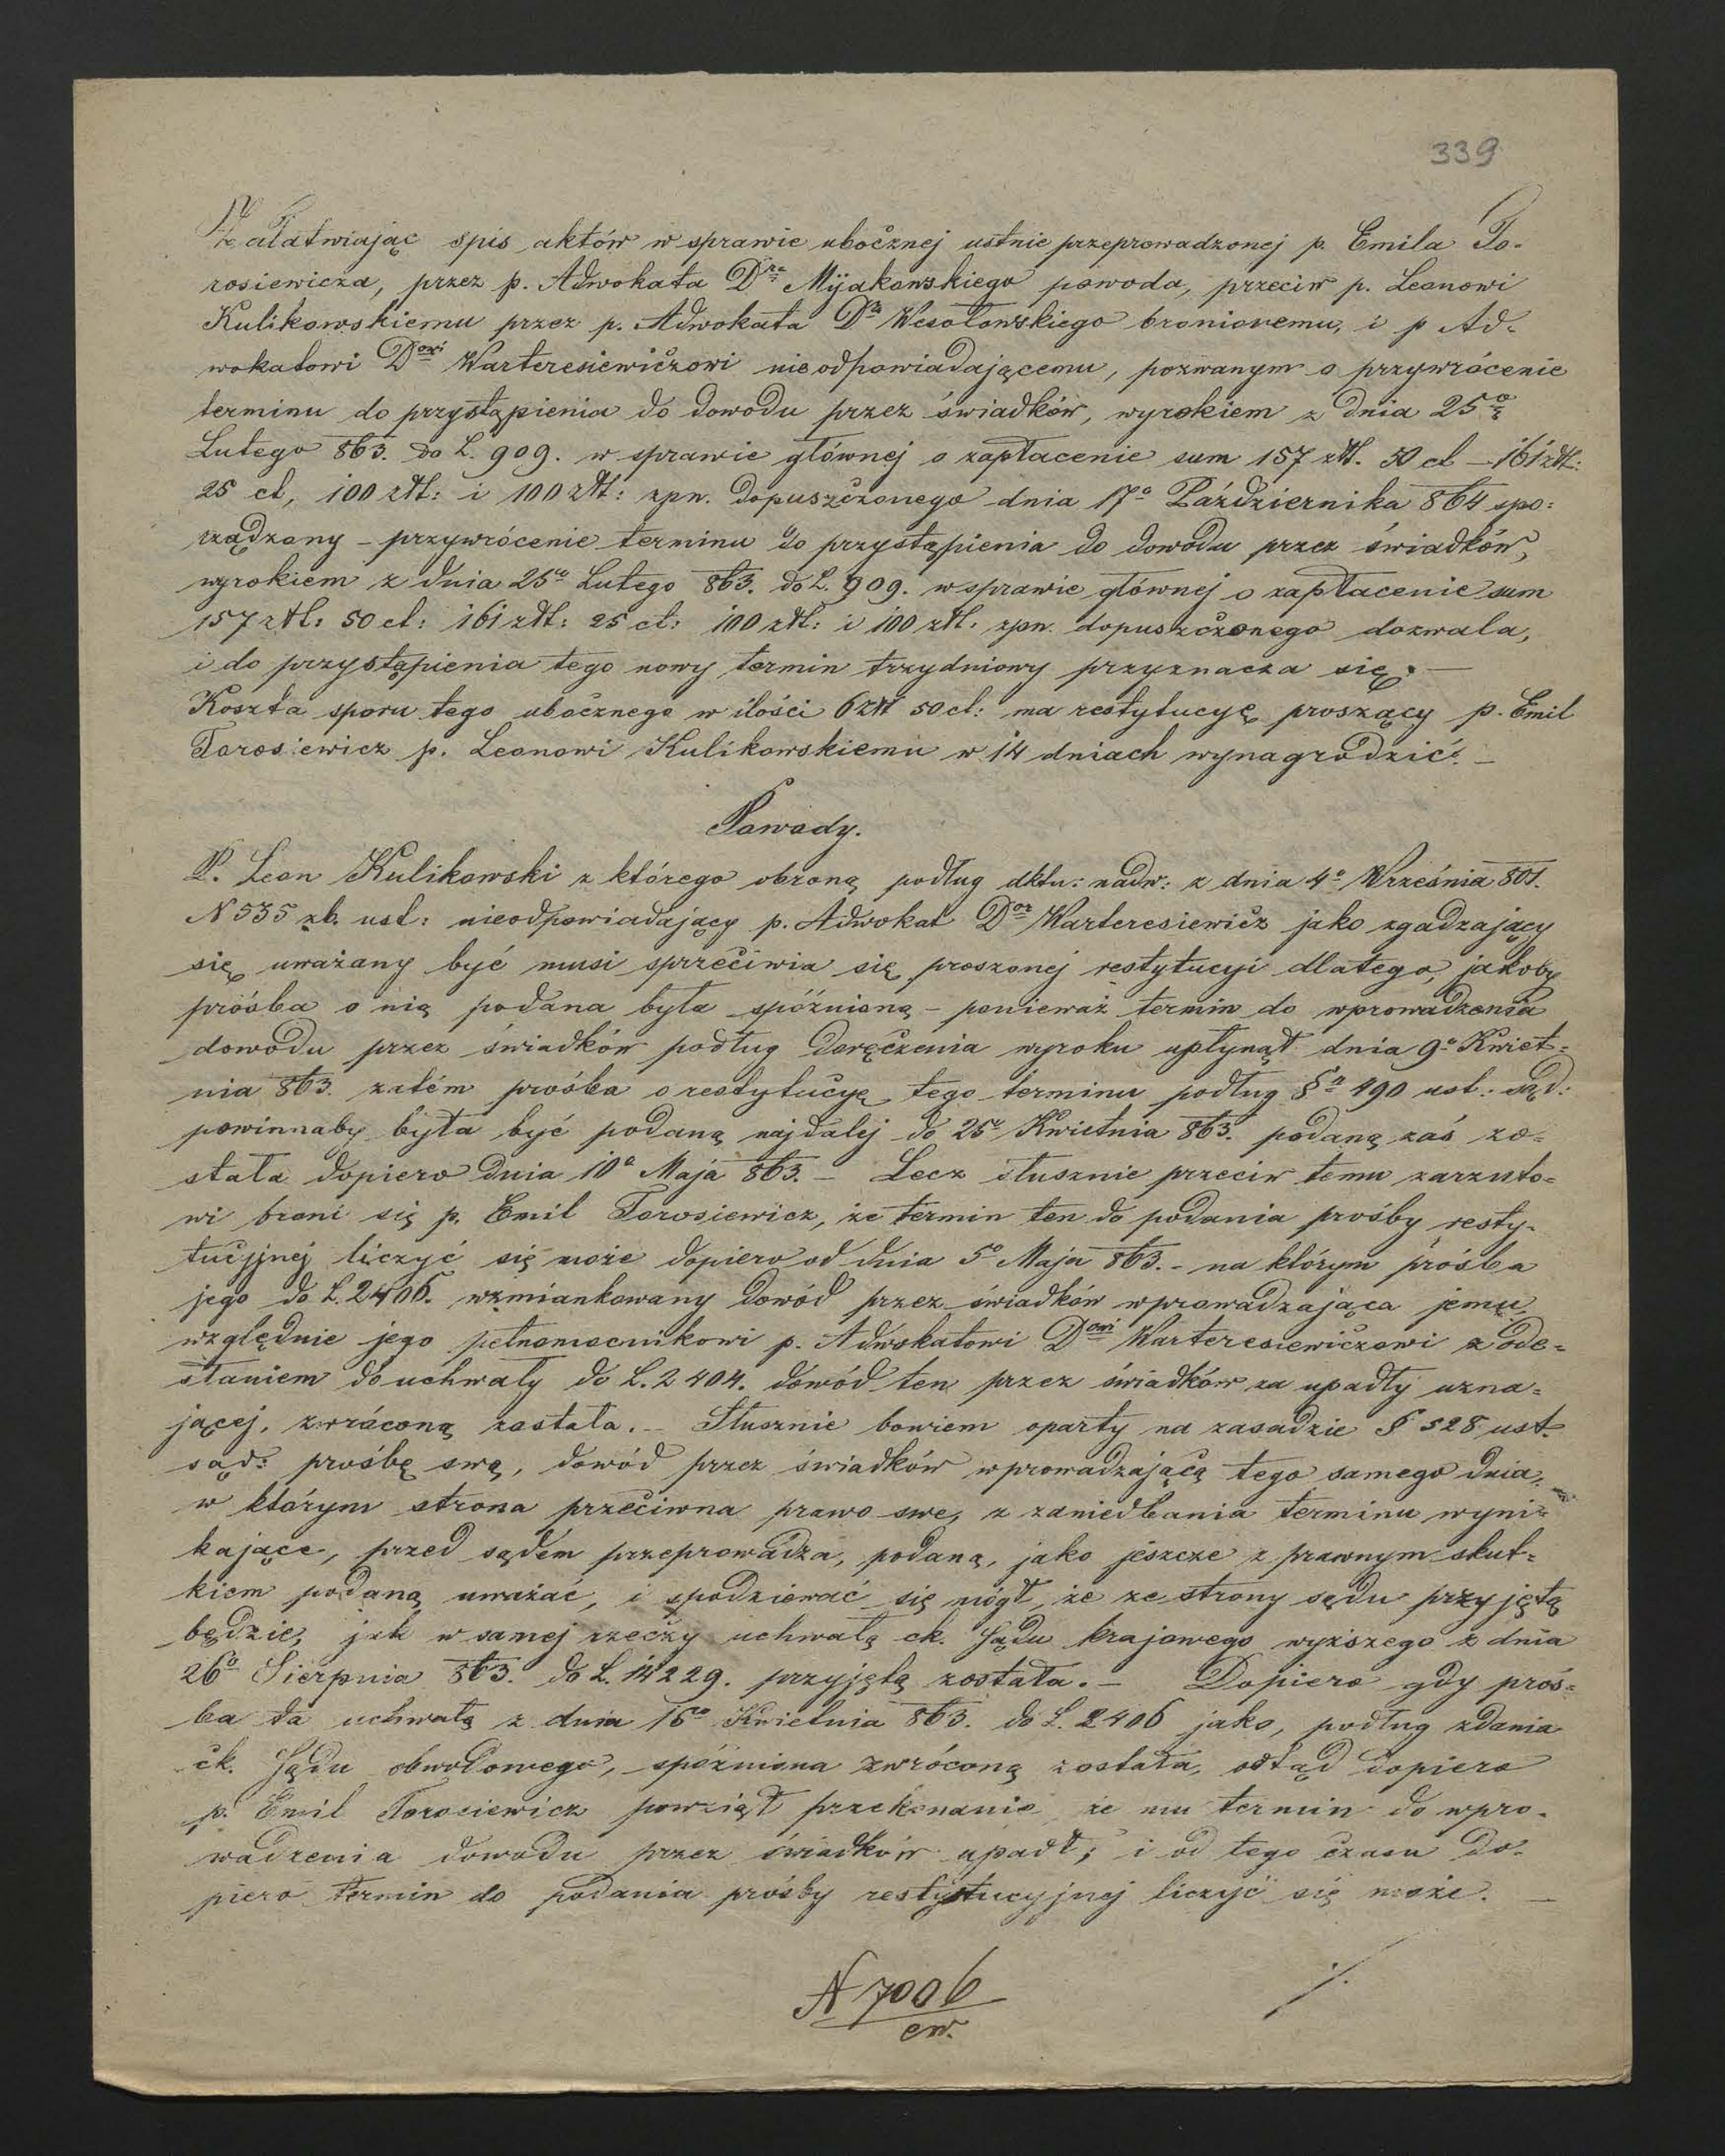 339
Załatwiając spis aktów w sprawie ubocznej ustnie przeprowadzonej p. Emila To-
rosiewicza, przez p. Adwokata Dra Mijakowskiego powoda, przeciw p. Leonowi
Kulikowskiemu przez p. Adwokata Dra Wesołowskiego bronionemu, i p Ad-
wokatowi Dowi Warteresiewiczowi nieodpowiadającemu, pozwanym o przywrócenie
terminu do przystąpienia do dowodu przez świadków, wyrokiem z dnia 25o
Lutego 863. do L. 909. w sprawie głównej o zapłacenie sum 157 złt. 50 ct – 161 złt:
25 ct, 100 złt: i 100 złt: zpn. dopuszczonego dnia 17o Października 864 spo:
rządzony – przywrócenie terminu do przystąpienia do dowodu przez świadków,
wyrokiem z dnia 25o Lutego 863. do L. 909. w sprawie głównej o zapłacenie sum
157 złt: 50 ct: 161 złt: 25 ct: 100 złt: i 100 złt: zpn. dopuszczonego dozwala,
i do przystąpienia tego nowy termin trzydniowy przyznacza się. –
Koszta sporu tego ubocznego w ilości 6 złt 50 ct: ma restytucyę proszący p. Emil
Torosiewicz p. Leonowi Kulikowskiemu w 14 dniach wynagrodzić. –
Powody.
P. Leon Kulikowski z którego obroną podług dktu: nadw: z dnia 4o Września 801.
N 535 zb. ust: nieodpowiadający p. Adwokat Dor Warteresiewicz jako zgadzający
się uważany być musi sprzeciwia się proszonej restytucyi dlatego, jakoby
prośba o nią podana była spóźnioną – ponieważ termin do wprowadzenia
dowodu przez świadków podług doręczenia wyroku upłynął dnia 9o Kwiet-
nia 863. zatém prośba o restytucyę tego terminu podług §u 490 ust: sąd:
powinnaby była być podaną najdalej do 25o Kwietnia 863. podaną zaś zo-
stała dopiero dnia 10o Maja 863. – Lecz słusznie przeciw temu zarzuto-
wi broni się p. Emil Torosiewicz, że termin ten do podania prośby resty-
tucyjnej liczyć się może dopiero od dnia 5o Maja 863. – na którym prośba
jego do L. 2406. wzmiankowany dowód przez świadków wprowadzająca jemu
względnie jego pełnomocnikowi p. Adwokatowi Dowi Warteresiewiczowi z ode-
słaniem do uchwały do L. 2404. dowód ten przez świadków za upadły uzna-
jącej, zwróconą została. – Słusznie bowiem oparty na zasadzie § 528 ust.
sąd: prośbę swą, dowód przez świadków wprowadzającą tego samego dnia,
w którym strona przeciwna prawo swe, z zaniedbania terminu wyni-
kające, przed sądem przeprowadza, podaną, jako jeszcze z prawnym skut-
kiem podaną uważać, i spodziewać się mógł, że ze strony sądu przyjętą
będzie, jak w samej rzeczy uchwałą ck. Sądu krajowego wyższego z dnia
26o Sierpnia 863. do L. 14229. przyjętą została. – Dopiero gdy proś-
ba ta uchwałą z dnia 16o Kwietnia 863. do L. 2406 jako, podług zdania
ck. Sądu obwodowego, spóźniona zwróconą została, odtąd dopiero
p. Emil Torosiewicz powziął przekonanie że mu termin do wpro-
wadzenia dowodu przez świadków upadł; i od tego czasu do-
piero termin do podania prośby restytucyjnej liczyć się może. –
N 7006
cw.
./.